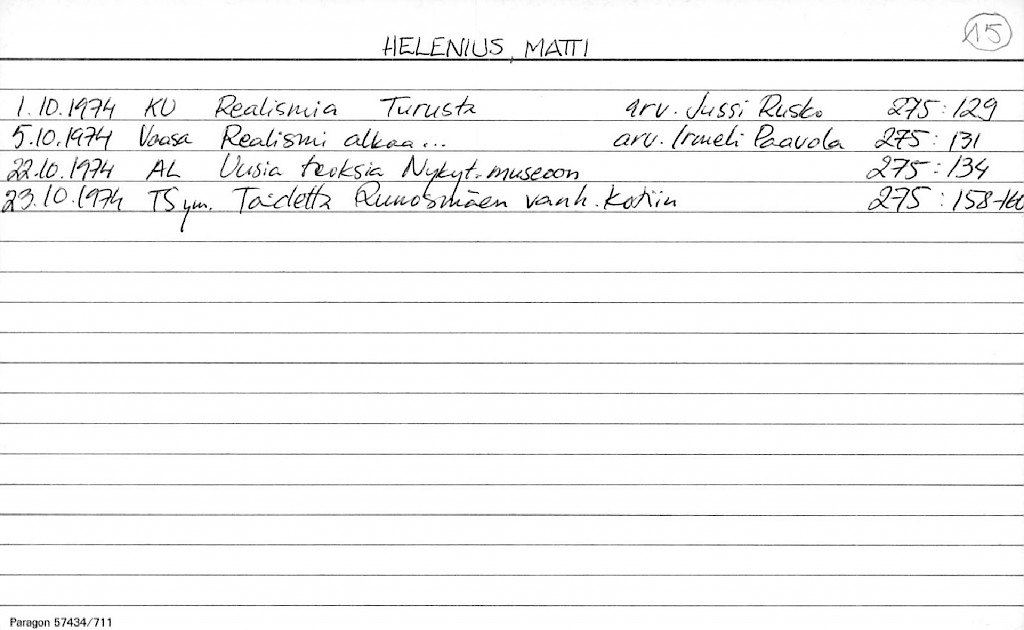 15
HELENIUS, MATTI
1.10.1974 KU Realismia Turusta arv. Jussi Rusko 275:129
5.10.1974 Vaasa Realismi alkaa... arv. Irmeli Paavola 275:131
22.10.1974 AL Uusia teoksia Nykyt.museoon 275:134
23.10.1974 TS ym. Taidetta Runosmäen vanh. kotiin 275:158-160
Paragon 57434/711